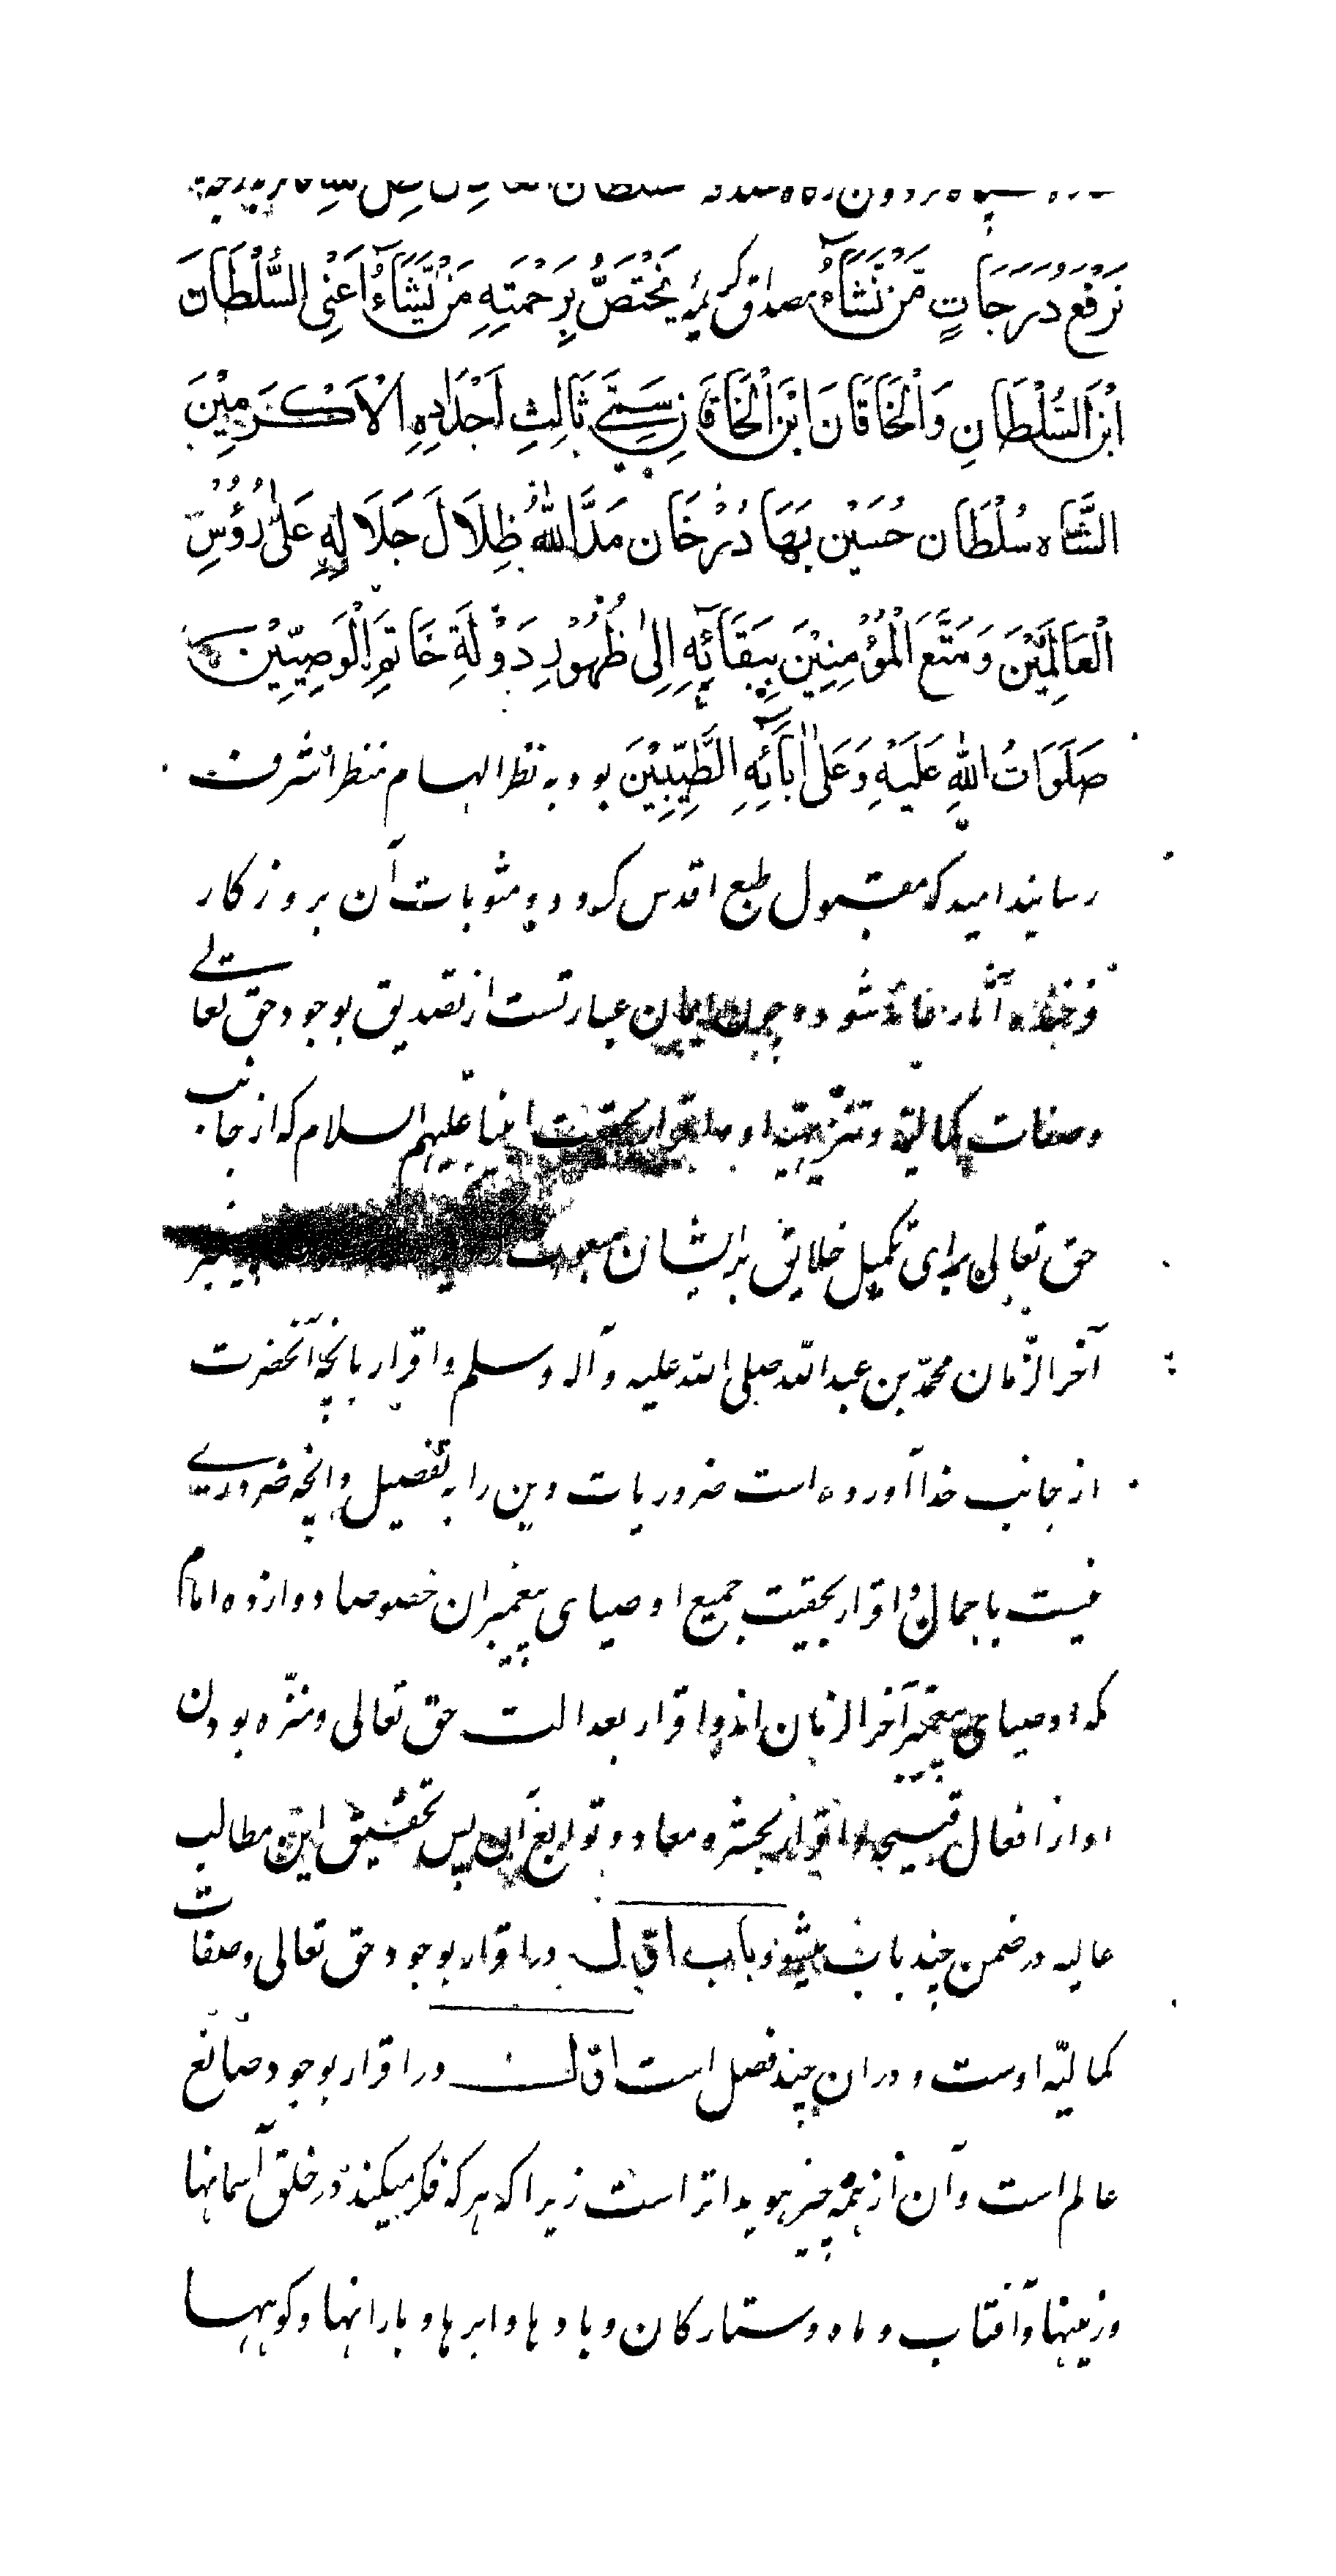 نَرْفَعُ دَرَجَاتٍ مَّنْ نَّشَآءُ مصداق كريمهٔ يَخْتَصُّ بِرَحْمَتِهِ مَنْ يَّشَآءُ اَعْنِى السُّلْطَانَ
ابْنَ السُّلْطَانِ وَالْخَاقَانَ ابْنَ الْخَاقَانِ سَمِّىَ ثَالِثِ اَجْدَادِهِ الْاَكْرَمِيْنَ
الشَّاه سُلْطَان حُسَيْن بَهَادُرْخَان مَدَّ اللهُ ظِلَالَ جَلَالِهِ عَلىٰ رُؤُسِ
الْعَالَمِيْنَ وَمَتَّعَ الْمُؤْمِنِيْنَ بِبَقَآئِهِ اِلىٰ ظُهُوْرِ دَوْلَةِ خَاتِمِ الْوَصِيِّيْنَ
صَلَوَاتُ اللهِ عَلَيْهِ وَعَلىٰ اٰبَآئِهِ الطَّيِّبِيْنَ بود به نظر الهام منظر اشرف
رسانيد اميد كه مقبول طبع اقدس كردد و مثوبات آن بروزكار
آثار عائد شود ايمان عبارتست از تصديق بوجود حق تعالے
وصفات كماليه و تنزيهيه او انبيا عليهم السلام كه از جانب
حق تعالى براى تكميل خلايق بر ايشان مبعوث
آخر الزمان محمّد بن عبد الله صلى الله عليه وآله وسلم واقرار بانچه آنحضرت
از جانب خدا آورده است ضروريات دين را به تفصيل وانچه ضرورے
نيست باجمال و اقرار بحقيت جميع اوصياى پيغمبران خصوصا دوازده امام
كه اوصياى پيغمبر آخر الزمان اند واقرار بعدالت حق تعالى ومنزّه بودن
او از افعال قبيحه واقرار بحشر ومعاد و توابع آن پس تحقيق اين مطالب
عاليه در ضمن چند باب ميشود باب اوّل در اقرار بوجود حق تعالى وصفات
كماليّه اوست و در ان چند فصل است اوّل در اقرار بوجود صانع
عالم است وآن از همه چيز هويداتر است زيرا كه هركه فكر ميكند در خلق آسمانها
وزمينها وآفتاب و ماه وستاركان و بادها وابرها وبارانها وكوهها